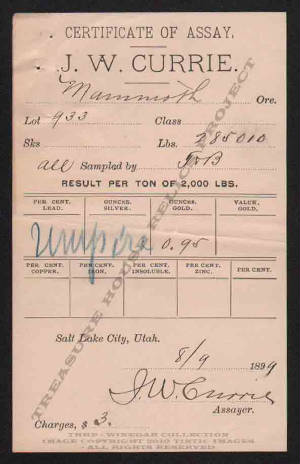 CERTIFICATE OF ASSAY.
J. W. CURRIE.
Mammoth Ore.
Lot 933 Class
Sks Lbs. 285010
all Sampled by T&B
RESULT PER TON OF 2,000 LBS.
PER CENT. LEAD. OUNCES. SILVER. OUNCES. GOLD. VALUE, GOLD.
Umpire 0.95
PER CENT. COPPER. PER CENT. IRON. PER CENT. INSOLUBLE. PER CENT. ZINC. PER CENT.
Salt Lake City, Utah.
8/9 1899
J.W. Currie
Assayer.
Charges, $ 3.
TREASURE HOUSE RELICS PROJECT
THRP - WINEGAR COLLECTION
IMAGE COPYRIGHT 2010 TINTIC IMAGES
- ALL RIGHTS RESERVED -